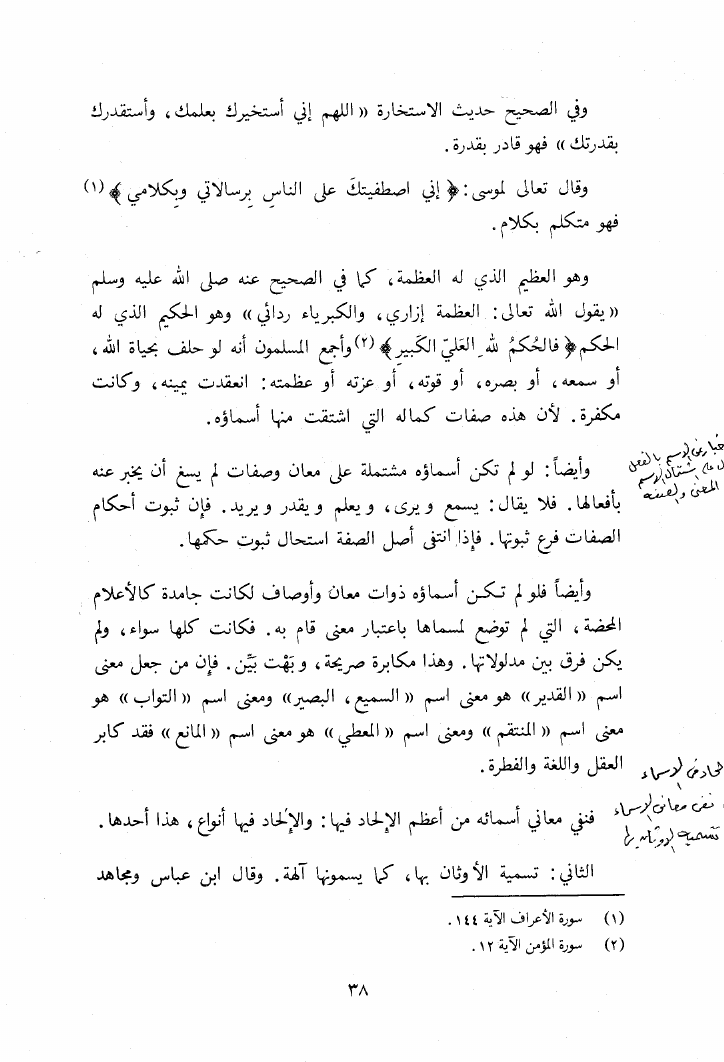 وفي الصحيح حديث الاستخارة «اللهم إني أستخيرك بعلمك، وأستقدرك
بقدرتك» فهو قادر بقدرة.
وقال تعالى لموسى: ﴿إني اصطفيتكَ على الناسِ بِرسالاتي وبِكلامي﴾ (١)
فهو متكلم بكلام.
وهو العظيم الذي له العظمة، كما في الصحيح عنه صلى الله عليه وسلم
«يقول الله تعالى: العظمة إزاري، والكبرياء ردائي» وهو الحكيم الذي له
الحكم ﴿فالحُكمُ للهِ العَليّ الكَبيرِ﴾ (٢) وأجمع المسلمون أنه لو حلف بحياة الله،
أو سمعه، أو بصره، أو قوته، أو عزته أو عظمته: انعقدت يمينه، وكانت
مكفرة. لأن هذه صفات كماله التي اشتقت منها أسماؤه.
وأيضاً: لو لم تكن أسماؤه مشتملة على معان وصفات لم يسغ أن يخبر عنه
بأفعالها. فلا يقال: يسمع ويرى، ويعلم ويقدر ويريد. فإن ثبوت أحكام
الصفات فرع ثبوتها. فإذا انتفى أصل الصفة استحال ثبوت حكمها.
وأيضاً فلو لم تكن أسماؤه ذوات معان وأوصاف لكانت جامدة كالأعلام
المحضة، التي لم توضع لمسماها باعتبار معنى قام به. فكانت كلها سواء، ولم
يكن فرق بين مدلولاتها. وهذا مكابرة صريحة، وبَهْت بَيِّن. فإن من جعل معنى
اسم «القدير» هو معنى اسم «السميع، البصير» ومعنى اسم «التواب» هو
معنى اسم «المنتقم» ومعنى اسم «المعطي» هو معنى اسم «المانع» فقد كابر
العقل واللغة والفطرة.
فنفي معاني أسمائه من أعظم الإلحاد فيها: والإلحاد فيها أنواع، هذا أحدها.
الثاني: تسمية الأوثان بها، كما يسمونها آلهة. وقال ابن عباس ومجاهد
(١) سورة الأعراف الآية ١٤٤.
(٢) سورة المؤمن الآية ١٢.
٣٨
الاسم بالفعل
اشتمال الاسم
المعنى والصفة
الأسماء
نفى معانى الأسماء
تسمية الأوثان بها